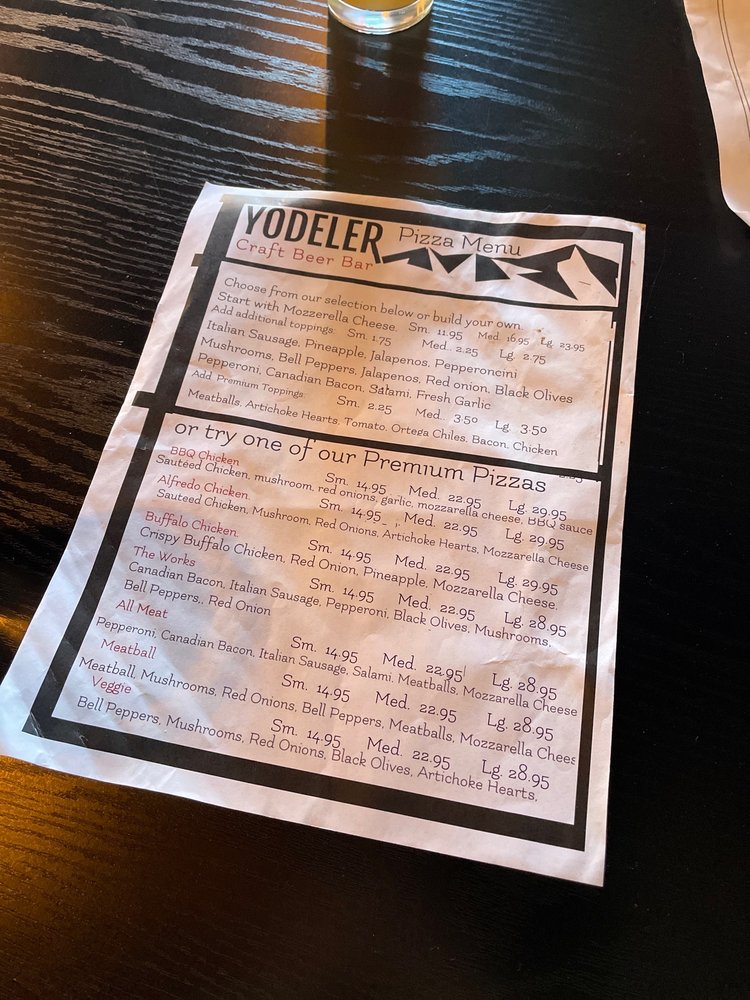 YODELER Pizza Menu
Craft Beer Bar
Choose from our selection below or build your own.
Start with Mozzerella Cheese. Sm. 11.95 Med. 16.95 Lg. 23.95
Add additional toppings. Sm. 1.75 Med.. 2.25 Lg. 2.75
Italian Sausage, Pineapple, Jalapenos, Pepperoncini
Mushrooms, Bell Peppers, Jalapenos, Red onion, Black Olives
Pepperoni, Canadian Bacon, Salami, Fresh Garlic
Add Premium Toppings. Sm. 2.25 Med.. 3.50 Lg. 3.50
Meatballs, Artichoke Hearts, Tomato, Ortega Chiles, Bacon, Chicken
or try one of our Premium Pizzas
BBQ Chicken Sm. 14.95 Med. 22.95 Lg. 29.95
Sautéed Chicken, mushroom, red onions, garlic, mozzarella cheese, BBQ sauce
Alfredo Chicken Sm. 14.95 Med. 22.95 Lg. 29.95
Sauteed Chicken, Mushroom, Red Onions, Artichoke Hearts, Mozzarella Cheese
Buffalo Chicken. Sm. 14.95 Med. 22.95 Lg. 29.95
Crispy Buffalo Chicken, Red Onion, Pineapple, Mozzarella Cheese.
The Works Sm. 14.95 Med. 22.95 Lg. 28.95
Canadian Bacon, Italian Sausage, Pepperoni, Black Olives, Mushrooms,
Bell Peppers,, Red Onion
All Meat Sm. 14.95 Med. 22.95 Lg. 28.95
Pepperoni, Canadian Bacon, Italian Sausage, Salami, Meatballs, Mozzarella Cheese
Meatball Sm. 14.95 Med. 22.95 Lg. 28.95
Meatball, Mushrooms, Red Onions, Bell Peppers, Meatballs, Mozzarella Chees
Veggie Sm. 14.95 Med. 22.95 Lg. 28.95
Bell Peppers, Mushrooms, Red Onions, Black Olives, Artichoke Hearts,